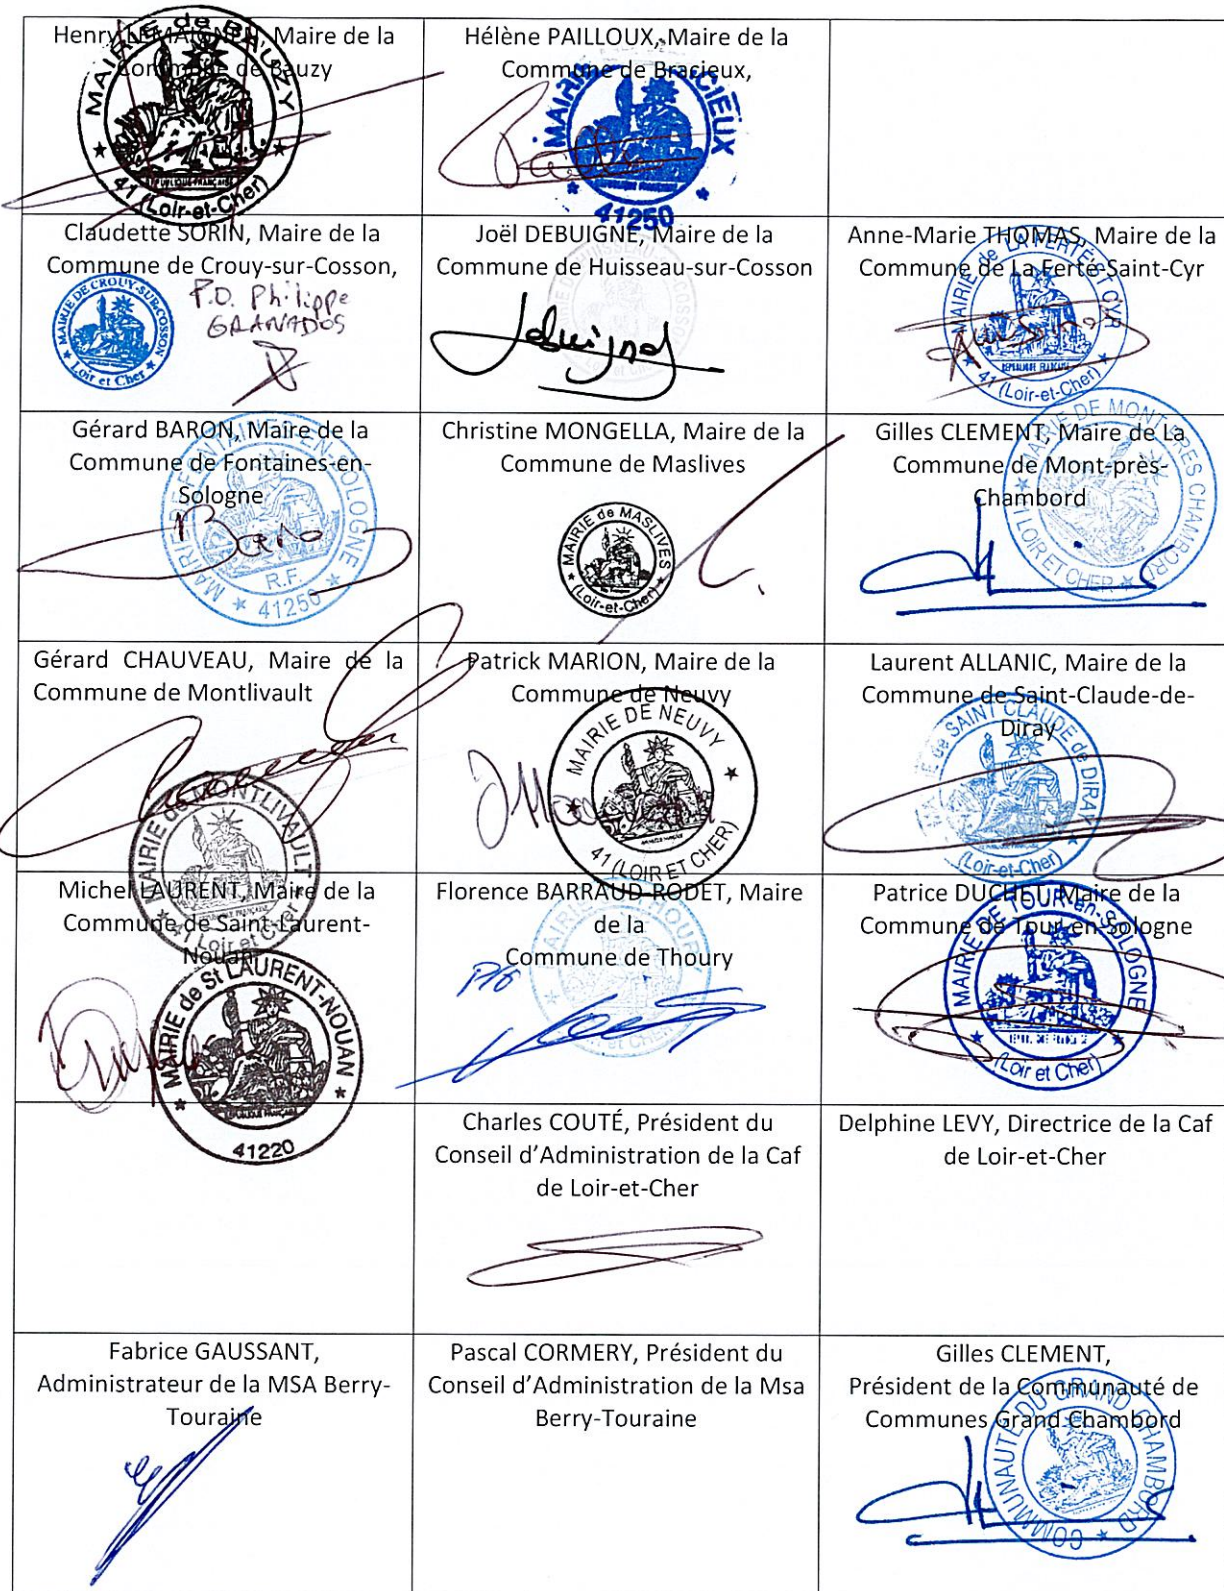 Henry LEMAIGNEN, Maire de la
Commune de Bauzy
MAIRIE de BAUZY
RÉPUBLIQUE FRANÇAISE
41 (Loir-et-Cher)
Hélène PAILLOUX, Maire de la
Commune de Bracieux,
MAIRIE CIEUX
RÉPUBLIQUE FRANÇAISE
41250
Claudette SORIN, Maire de la
Commune de Crouy-sur-Cosson,
P.O. Philippe
GRANADOS
MAIRIE DE CROUY-SUR-COSSON
Loir et Cher
Joël DEBUIGNE, Maire de la
Commune de Huisseau-sur-Cosson
Debuigne
Anne-Marie THOMAS, Maire de la
Commune de La Ferté-Saint-Cyr
MAIRIE de LA FERTÉ ST CYR
RÉPUBLIQUE FRANÇAISE
41 (Loir-et-Cher)
Gérard BARON, Maire de la
Commune de Fontaines-en-
Sologne
MAIRIE DE FONTAINES-EN-SOLOGNE
R.F.
41250
Christine MONGELLA, Maire de la
Commune de Maslives
MAIRIE de MASLIVES
(Loir-et-Cher)
Gilles CLEMENT, Maire de La
Commune de Mont-près-
Chambord
MAIRIE DE MONT PRES CHAMBORD
LOIR ET CHER
Gérard CHAUVEAU, Maire de la
Commune de Montlivault
MAIRIE de MONTLIVAULT
41 Loir et Cher
Patrick MARION, Maire de la
Commune de Neuvy
MAIRIE DE NEUVY
41 (LOIR ET CHER)
Laurent ALLANIC, Maire de la
Commune de Saint-Claude-de-
Diray
de SAINT CLAUDE de DIRAY
(Loir-et-Cher)
Michel LAURENT, Maire de la
Commune de Saint-Laurent-
Nouan
MAIRIE de St LAURENT-NOUAN
RÉPUBLIQUE FRANÇAISE
41220
Florence BARRAUD-RODET, Maire
de la
Commune de Thoury
Patrice DUCHET, Maire de la
Commune de Tour-en-Sologne
MAIRIE DE TOUR-en-SOLOGNE
(Loir et Cher)
Charles COUTÉ, Président du
Conseil d'Administration de la Caf
de Loir-et-Cher
Delphine LEVY, Directrice de la Caf
de Loir-et-Cher
Fabrice GAUSSANT,
Administrateur de la MSA Berry-
Touraine
Pascal CORMERY, Président du
Conseil d'Administration de la Msa
Berry-Touraine
Gilles CLEMENT,
Président de la Communauté de
Communes Grand Chambord
COMMUNAUTE DU GRAND CHAMBORD